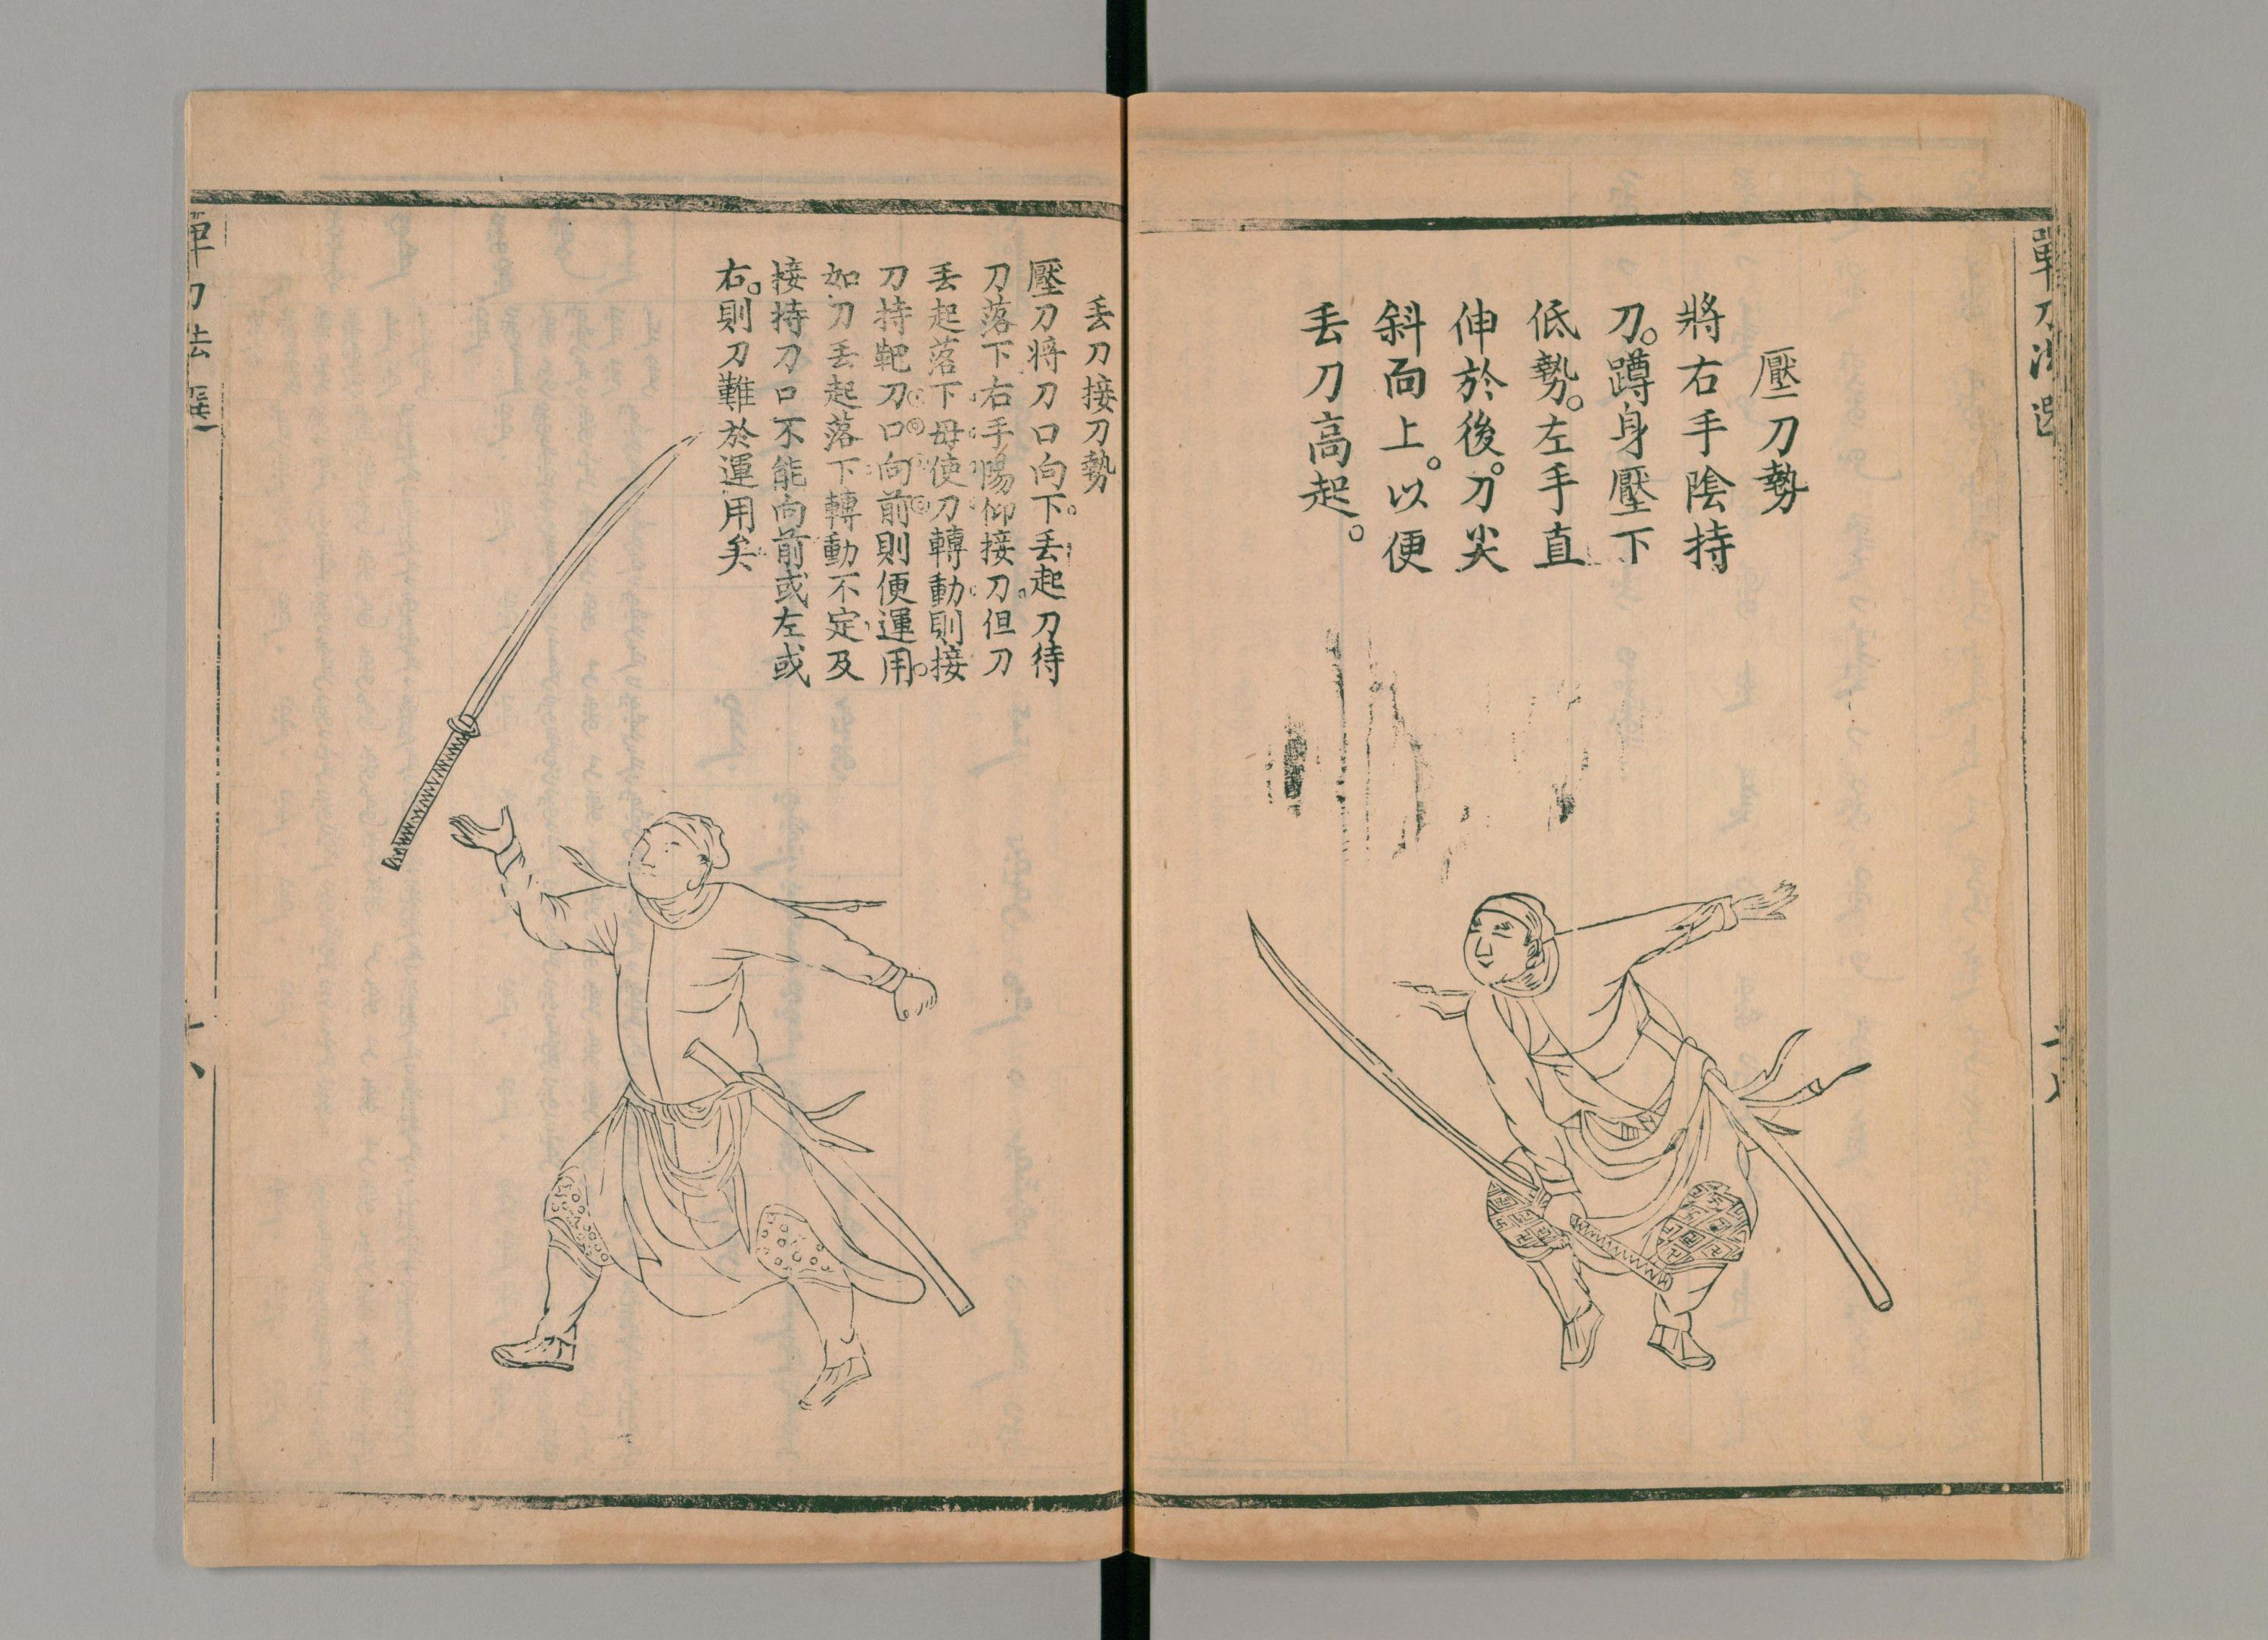 單刀法選
壓刀勢
將右手陰持
刀。蹲身壓下
低勢。左手直
伸於後。刀尖
斜向上。以便
丢刀高起。
丢刀接刀勢
壓刀將刀口向下。丢起刀待
刀落下右手陽仰接刀。但刀
丢起落下毋使刀轉動則接
刀持靶刀口向前則便運用。
如刀丢起落下轉動不定及
接持刀口不能向前或左或
右。則刀難於運用矣
單刀法選